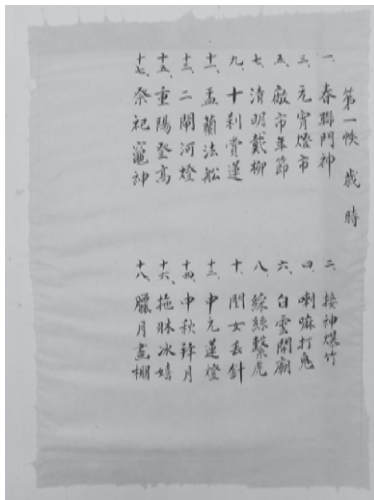 第一帙 歲時
一、春聯門神
二、接神爆竹
三、元宵燈市
四、喇嘛打鬼
五、廠市年節
六、白雲開廟
七、清明戴柳
八、綵絲繫虎
九、十刹賞蓮
十、女丢針
十一、盂蘭法船
十二、中元蓮燈
十三、二閘河燈
十四、中秋拜月
十五、重陽登高
十六、拖牀冰嬉
十七、祭祀竈神
十八、臘月畫棚